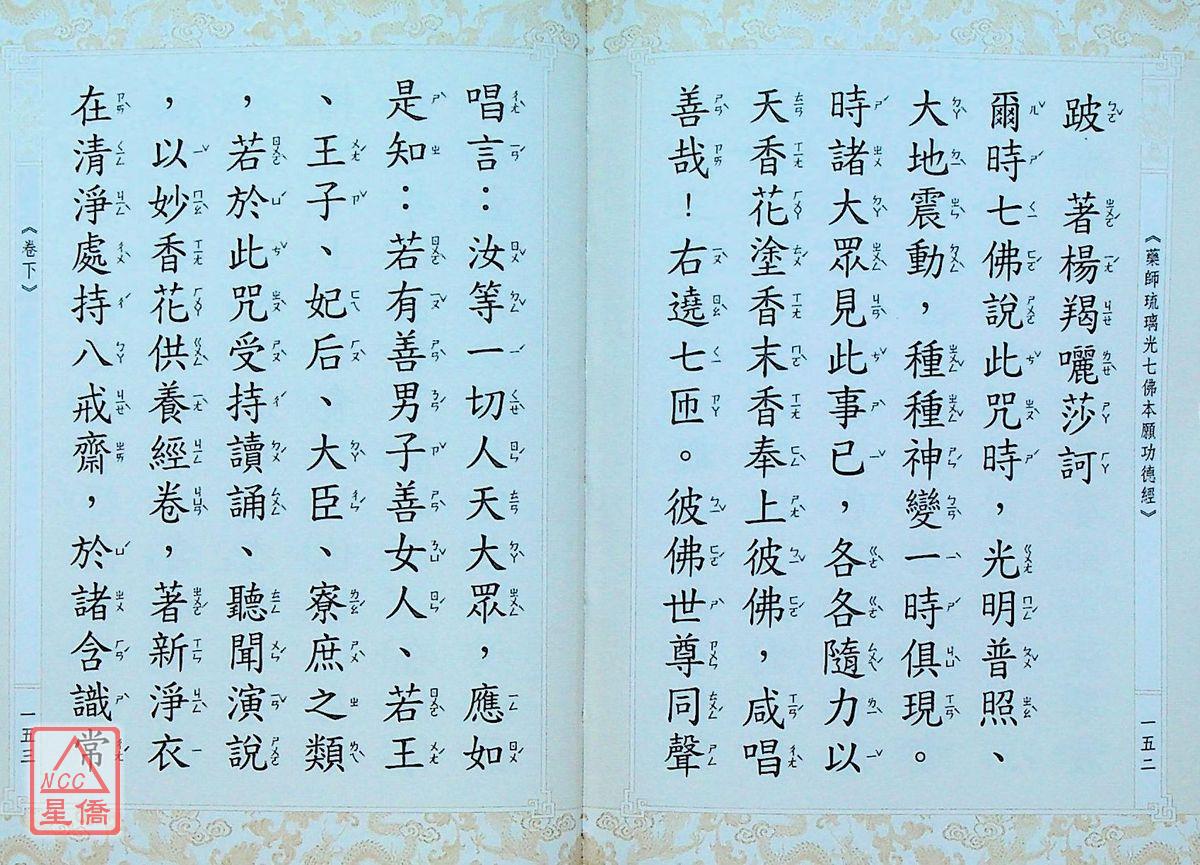 《藥師琉璃光七佛本願功德經》
一五二
跛　著楊羯囇莎訶
爾時七佛說此咒時，光明普照、
大地震動，種種神變一時俱現。
時諸大眾見此事已，各各隨力以
天香花塗香末香奉上彼佛，咸唱
善哉！右遶七匝。彼佛世尊同聲
唱言：汝等一切人天大眾，應如
是知：若有善男子善女人、若王
、王子、妃后、大臣、寮庶之類
，若於此咒受持讀誦、聽聞演說
，以妙香花供養經卷，著新淨衣
在清淨處持八戒齋，於諸含識常
《卷下》
一五三
NCC
星僑